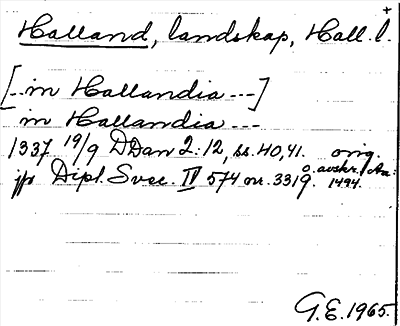 +
Halland, landskap, Hall. l.
[... in Hallandia ---]
in Hallandia ---
1337 19/9 DDan 2:12, ss. 40, 41. orig.
jfr Dipl. Svec. IV 574 nr. 3319. o. avskr.
1494.
G.E. 1965.